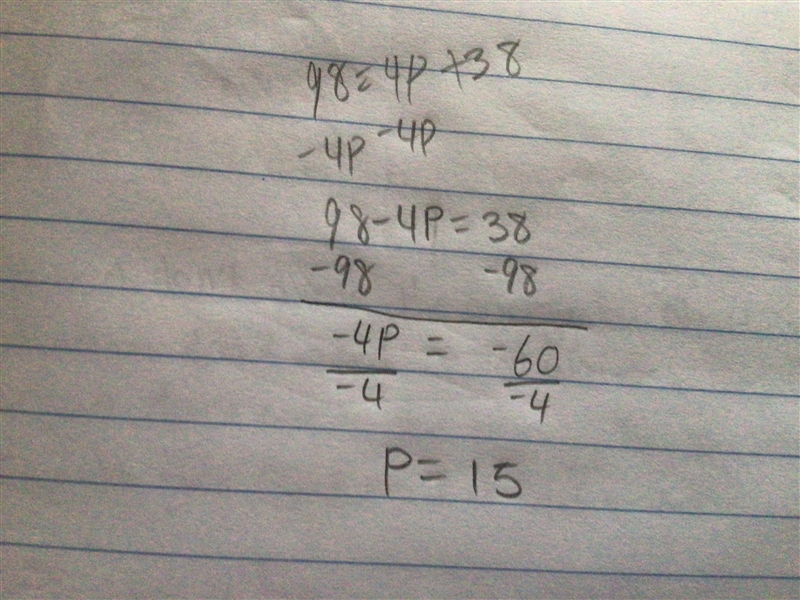 98=4P+38
-4P -4P
98-4P=38
-98 -98
-4P = -60
-4 -4
P=15